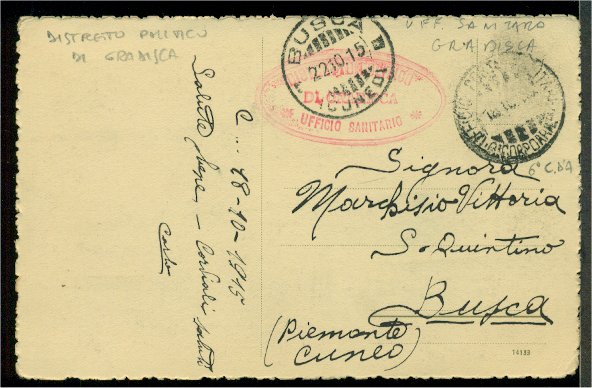 DISTRETO POLITICO
DI GRADISCA
UFF. SANITARO
GRADISCA
BUSCA
22.10.15
(CUNEO)
DI GRADISCA
UFFICIO SANITARIO
6° C.D'A
18-10-1915
Salute bene - Cordiali saluti
Carlo
Signora
Marchisio Vittoria
S. Quintino
Busca
(Piemonte
Cuneo)
14133